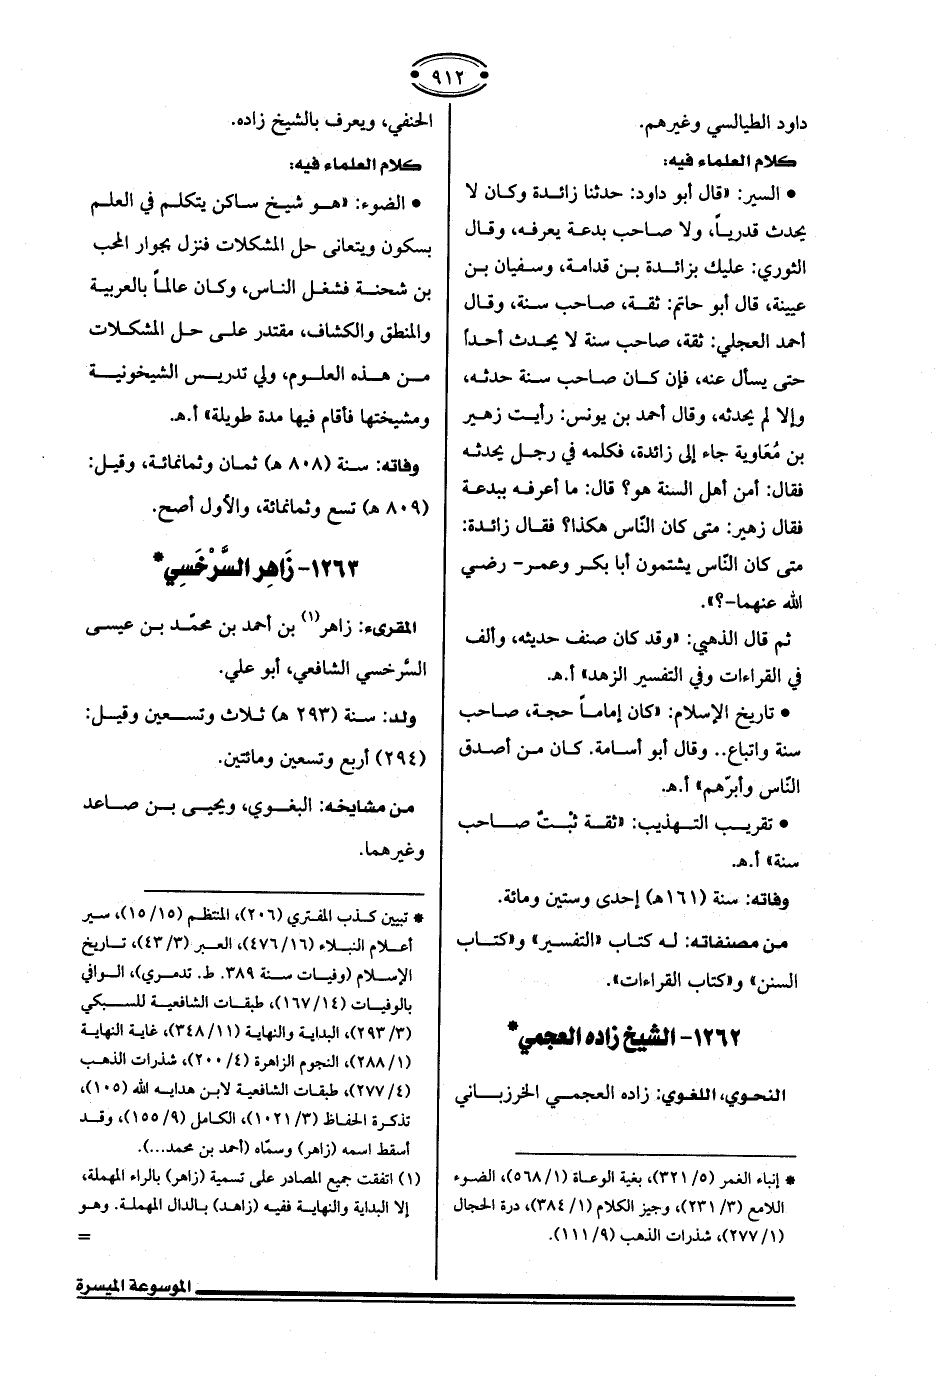 ٩١٢
داود الطيالسي وغيرهم.
كلام العلماء فيه:
• السير: «قال أبو داود: حدثنا زائدة وكان لا
يحدث قدرياً، ولا صاحب بدعة يعرفه، وقال
الثوري: عليك بزائدة بن قدامة، وسفيان بن
عيينة، قال أبو حاتم: ثقة، صاحب سنة، وقال
أحمد العجلي: ثقة، صاحب سنة لا يحدث أحداً
حتى يسأل عنه، فإن كان صاحب سنة حدثه،
وإلا لم يحدثه، وقال أحمد بن يونس: رأيت زهير
بن مُعَاوية جاء إلى زائدة، فكلمه في رجل يحدثه
فقال: أمن أهل السنة هو؟ قال: ما أعرفه ببدعة
فقال زهير: متى كان النّاس هكذا؟ فقال زائدة:
متى كان النّاس يشتمون أبا بكر وعمر- رضي
الله عنهما-؟».
ثم قال الذهبي: «وقد كان صنف حديثه، وألف
في القراءات وفي التفسير الزهد» أ.هـ.
• تاريخ الإسلام: «كان إماماً حجة، صاحب
سنة واتباع.. وقال أبو أسامة. كان من أصدق
النّاس وأبرّهم» أ.هـ.
• تقريب التهذيب: «ثقة ثبْتٌ صاحب
سنة» أ.هـ.
وفاته: سنة (١٦١هـ) إحدى وستين ومائة.
من مصنفاته: له كتاب «التفسير» و«كتاب
السنن» و«كتاب القراءات».
١٢٦٢- الشيخ زاده العجمي*
النحوي، اللغوي: زاده العجمي الخرزباني
* إنباء الغمر (٥/ ٣٢١)، بغية الوعاة (١/ ٥٦٨)، الضوء
اللامع (٣/ ٢٣١)، وجيز الكلام (١/ ٣٨٤)، درة الحجال
(١/ ٢٧٧)، شذرات الذهب (٩/ ١١١).
الحنفي، ويعرف بالشيخ زاده.
كلام العلماء فيه:
• الضوء: «هو شيخ ساكن يتكلم في العلم
بسكون ويتعانى حل المشكلات فنزل بجوار المحب
بن شحنة فشغل الناس، وكان عالماً بالعربية
والمنطق والكشاف، مقتدر على حل المشكلات
من هذه العلوم، ولي تدريس الشيخونية
ومشيختها فأقام فيها مدة طويلة» أ.هـ.
وفاته: سنة (٨٠٨ هـ) ثمان وثمانمائة، وقيل:
(٨٠٩ هـ) تسع وثمانمائة، والأول أصح.
١٢٦٣- زَاهِر السَّرْخَسِي*
المقرىء: زاهر(١) بن أحمد بن محمّد بن عيسى
السَّرخسي الشافعي، أبو علي.
ولد: سنة (٢٩٣ هـ) ثلاث وتسعين وقيل:
(٢٩٤) أربع وتسعين ومائتين.
من مشايخه: البغوي، ويحيى بن صاعد
وغيرهما.
* تبيين كذب المفتري (٢٠٦)، المنتظم (١٥/ ١٥)، سير
أعلام النبلاء (١٦/ ٤٧٦)، العبر (٣/ ٤٣)، تاريخ
الإسلام (وفيات سنة ٣٨٩. ط. تدمري)، الوافي
بالوفيات (١٤/ ١٦٧)، طبقات الشافعية للسبكي
(٣/ ٢٩٣)، البداية والنهاية (١١/ ٣٤٨)، غاية النهاية
(١/ ٢٨٨)، النجوم الزاهرة (٤/ ٢٠٠)، شذرات الذهب
(٤/ ٢٧٧)، طبقات الشافعية لابن هدايه الله (١٠٥)،
تذكرة الحفاظ (٣/ ١٠٢١)، الكامل (٩/ ١٥٥)، وقد
أسقط اسمه (زاهر) وسمّاه (أحمد بن محمد...).
(١) اتفقت جميع المصادر على تسمية (زاهر) بالراء المهملة،
إلا البداية والنهاية ففيه (زاهد) بالدال المهملة. وهو
=
الموسوعة الميسرة